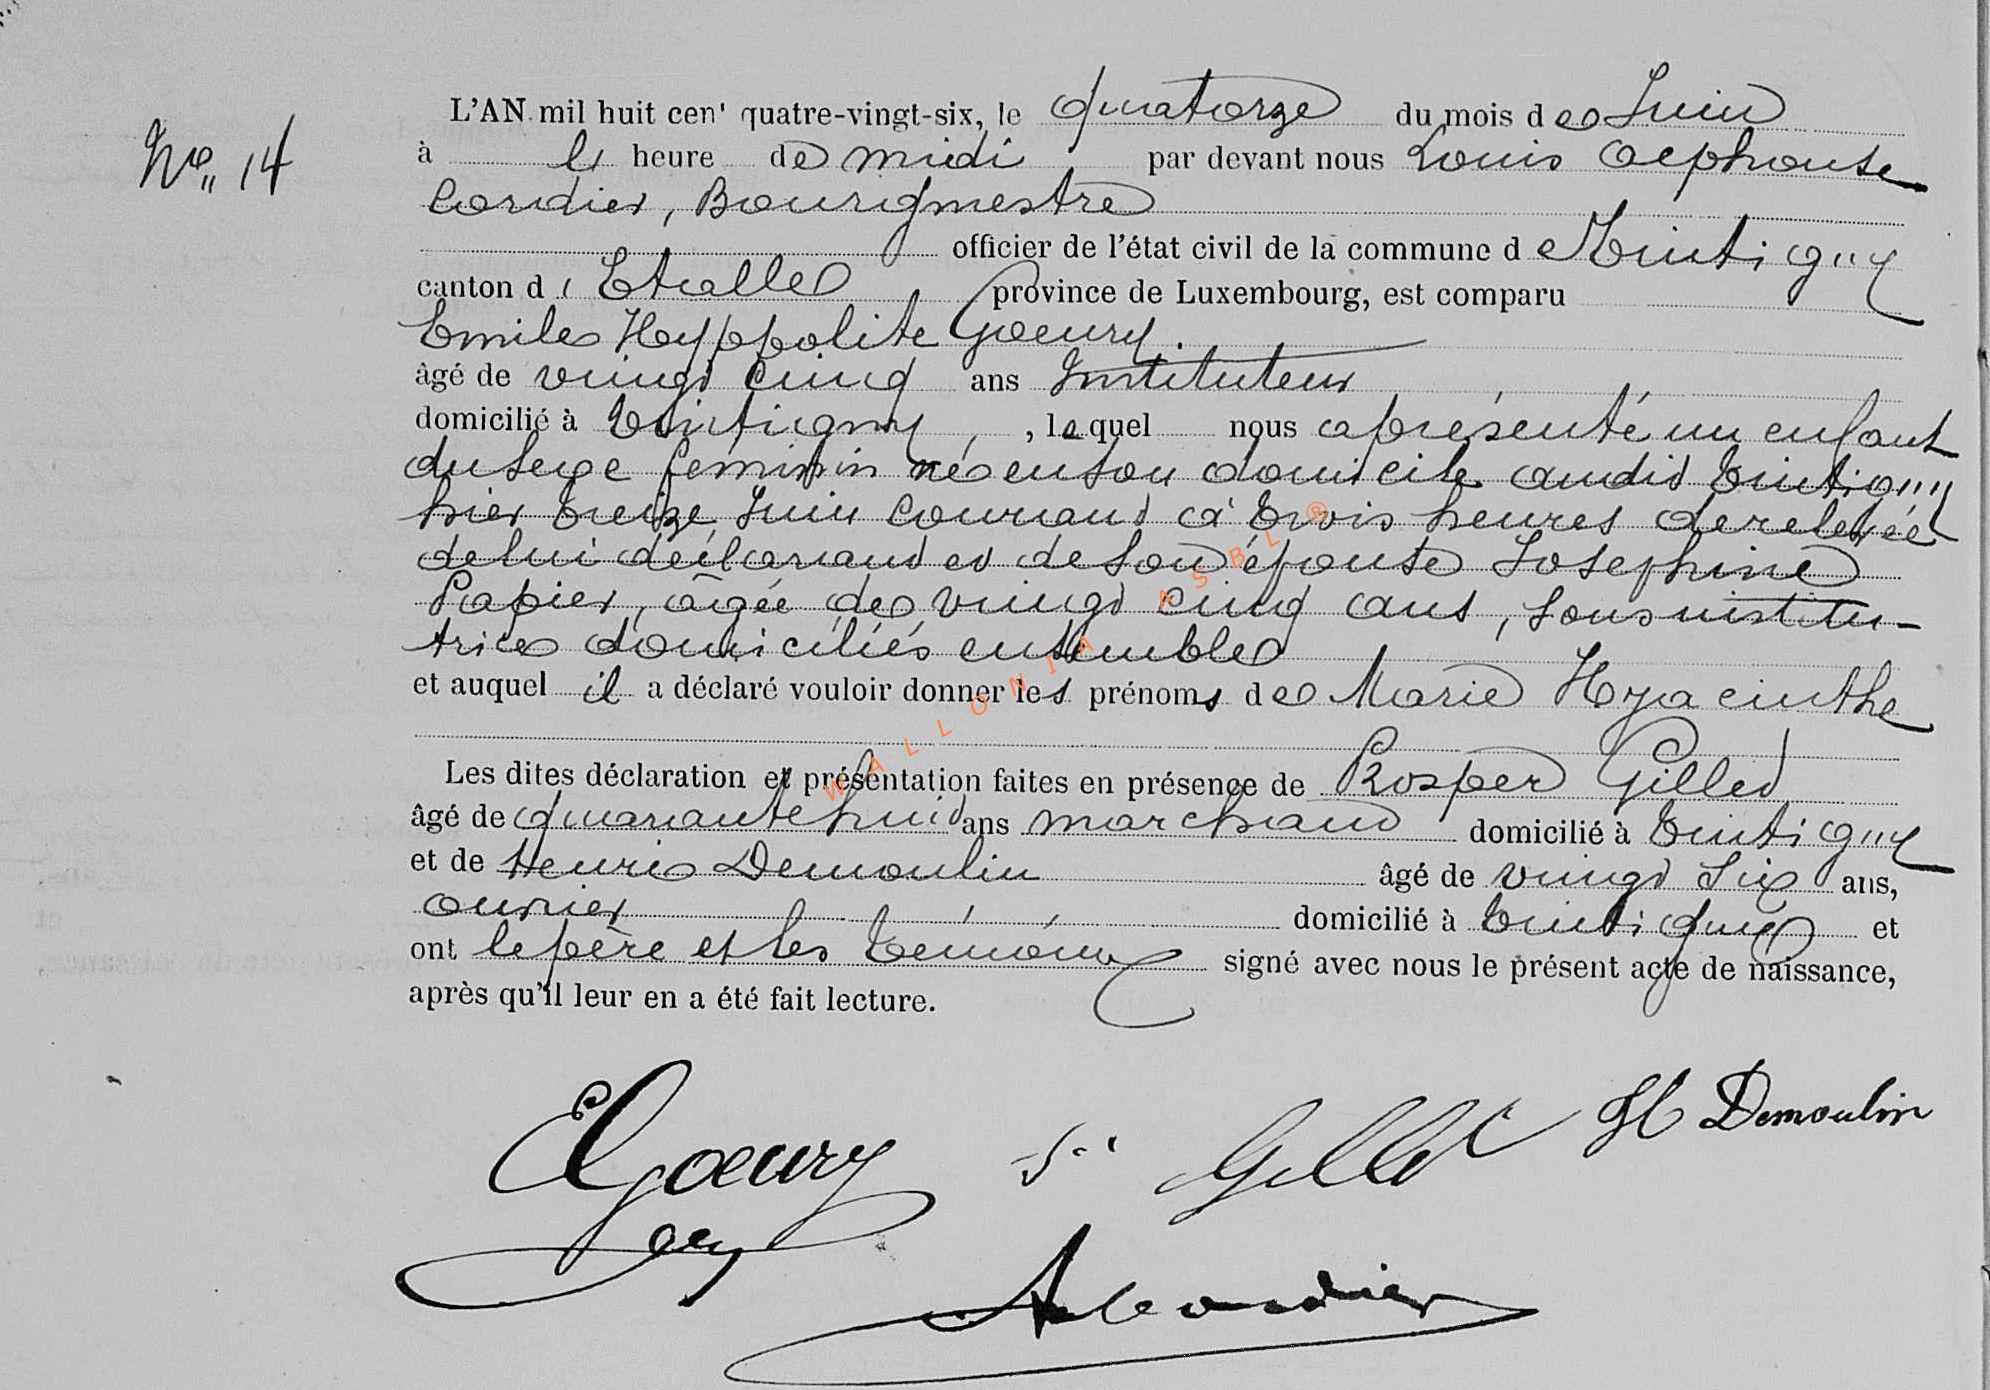 N° 14
L'AN mil huit cent quatre-vingt-six, le quatorze du mois de Juin
à l' heure de midi par devant nous Louis Alphonse
Cordier, Bourgmestre
officier de l'état civil de la commune de Tintigny
canton d'Etalle province de Luxembourg, est comparu
Emile Hyppolite Goeury.
âgé de vingt cinq ans Instituteur
domicilié à Tintigny, lequel nous a présenté un enfant
du sexe féminin né en son domicile audit Tintigny
hier treize Juin courant à trois heures de relevée
de lui déclarant et de son épouse Joséphine
Papier, âgée de vingt cinq ans, sous institu-
trice domiciliés ensemble
et auquel il a déclaré vouloir donner les prénoms de Marie Hyacinthe
Les dites déclaration et présentation faites en présence de Prosper Gillet
âgé de quarante huit ans marchand domicilié à Tintigny
et de Henri Demoulin âgé de vingt six ans,
ouvrier domicilié à Tintigny et
ont le père et les témoins signé avec nous le présent acte de naissance,
après qu'il leur en a été fait lecture.
EGoeury Gillet H Demoulin
A Cordier
WALLONIA ASBL ®